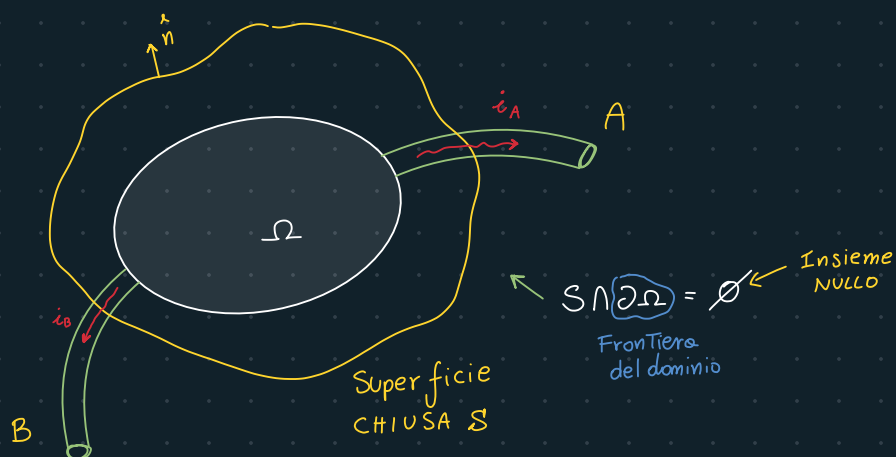 n̂
i_A
A
Ω
S∩∂Ω = ∅
Insieme
NULLO
Frontiera
del dominio
i_B
Superficie
CHIUSA S
B